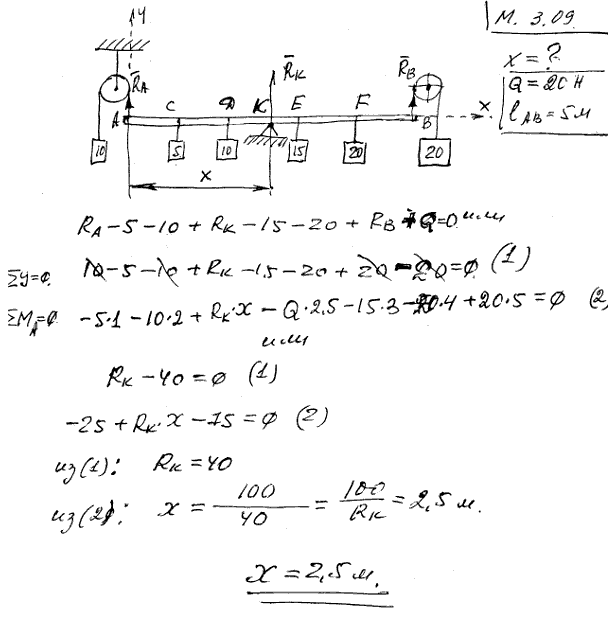 М. 3.09.
y
x = ?
Q = 20 Н
l_AB = 5 м
R̄_A R̄_K R̄_B
A C D K E F B x
10 5 10 15 20 20
x
R_A - 5 - 10 + R_K - 15 - 20 + R_B - Q = 0 или
Σy=0. 10 - 5 - 10 + R_K - 15 - 20 + 20 - 20 = 0 (1)
ΣM_A=0. -5·1 - 10·2 + R_K·x - Q·2,5 - 15·3 - 20·4 + 20·5 = 0 (2)
или
R_K - 40 = 0 (1)
-25 + R_K·x - 75 = 0 (2)
из(1): R_K = 40
из(2): x = 100/40 = 100/R_K = 2,5 м.
x = 2,5 м.